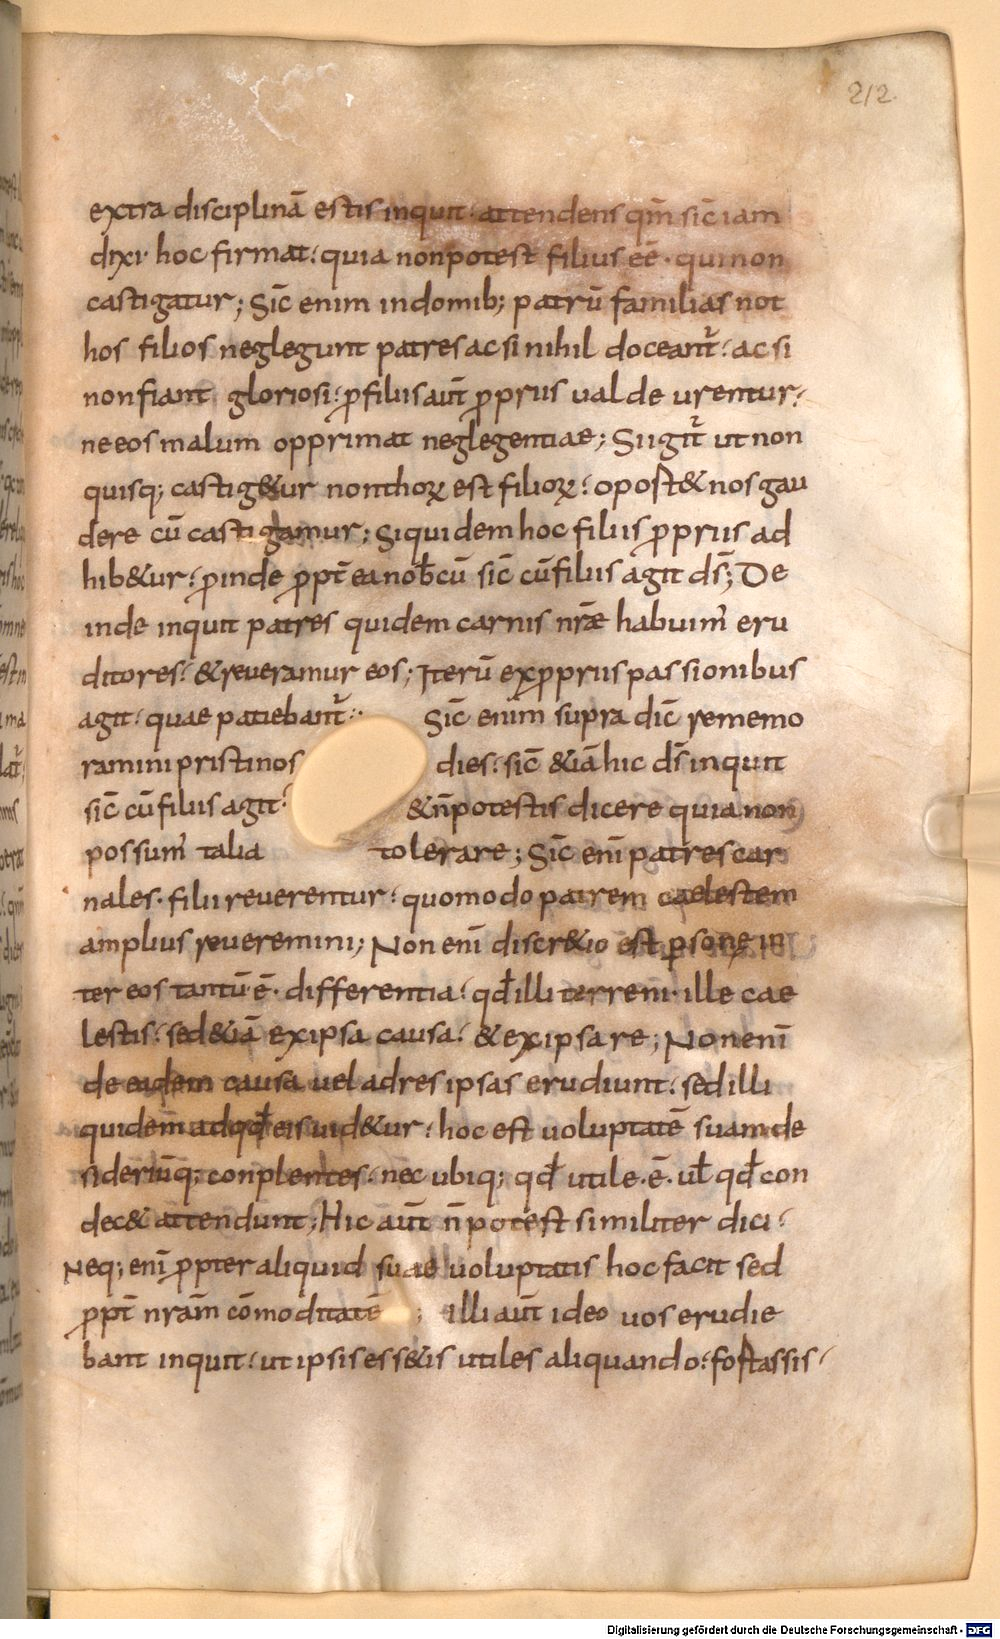 212.
extra disciplinā estis inquit· attendens qm̄ sic̄ iam
dixi· hoc firmat: quia non potest filius eē· qui non
castigatur; Sic̄ enim in domib; patrū familias not
hos filios neglegunt patres ac si nihil doceant᷑: ac si
non fiant gloriosi: ꝓ filiis aut̄ ꝓpriis ualde urentur:
ne eos malum opprimat neglegentiae; Si igit᷑ ut non
quisq; castig&ur nonthoꝝ est filioꝝ: oport& nos gau
dere cū castigamur; Si quidem hoc filiis ꝓpriis ad
hib&ur: ꝓinde ꝓpt̄ ea nobcū sic̄ cū filiis agit ds̄; De
inde inquit patres quidem carnis nr̄ae habuim᷒ eru
ditores: & reueramur eos; Iterū ex ꝓpriis passionibus
agit: quae patiebant᷑: Sic̄ enim supra dic̄ rememo
ramini pristinos dies: sic̄ &iā hic ds̄ inquit
sic̄ cū filiis agit: & n̄ potestis dicere quia non
possum᷒ talia tolerare; Sic̄ enī patres car
nales· filii reuerentur: quomodo patrem caelestem
amplius reueremini; Non enī discr&io est ꝑsonę in
ter eos tantū· ē· differentia: qd̄ illi terreni· ille cae
lestis: sed &iā ex ipsa causa: & ex ipsa re; Non enī
de eadem causa uel ad res ipsas erudiunt: sed illi
quidem ad qd̄ eis uid&ur: hoc est uoluptatē suam de
sideriūq; conplentes: nec ubiq; qd̄ utile· ē· ul̄ qd̄ con
dec& attendunt; Hic aut̄ n̄ potest similiter dici:
Neq; enī ꝓpter aliquid suae uoluptatis hoc facit sed
ꝓpt̄ nrām cōmoditatē; illi aut̄ ideo uos erudie
bant inquit: ut ipsis ess&is utiles aliquando: fortassis
Digitalisierung gefördert durch die Deutsche Forschungsgemeinschaft - DFG